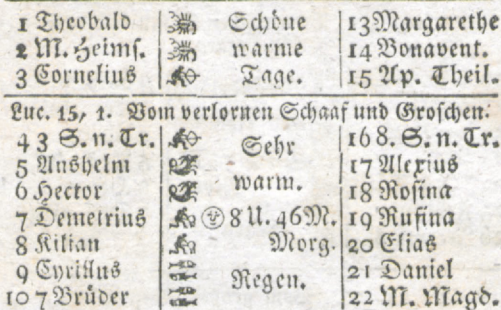 1 Theobald Schöne 13 Margarethe
2 M. Heims. warme 14 Bonavent.
3 Cornelius Tage. 15 Ap. Theil.
Luc. 15, 1. Vom verlornen Schaaf und Groschen.
4 3 S. n. Tr. Sehr 16 8. S. n. Tr.
5 Anshelm 17 Alexius
6 Hector warm. 18 Rosina
7 Demetrius 8 U. 46 M. 19 Rufina
8 Kilian Morg. 20 Elias
9 Cyrillus Regen. 21 Daniel
10 7 Brüder 22 M. Magd.